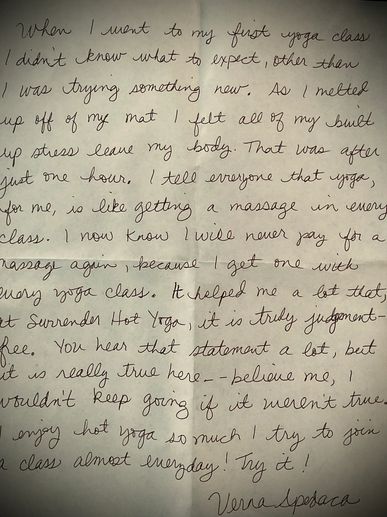 When I went to my first yoga class
I didn't know what to expect, other than
I was trying something new. As I melted
up off of my mat I felt all of my built
up stress leave my body. That was after
just one hour. I tell everyone that yoga,
for me, is like getting a massage in every
class. I now know I will never pay for a
massage again, because I get one with
every yoga class. It helped me a lot that,
at Surrender Hot Yoga, it is truly judgement-
free. You hear that statement a lot, but
it is really true here--believe me, I
wouldn't keep going if it weren't true.
I enjoy hot yoga so much I try to join
a class almost everyday! Try it!
Verna